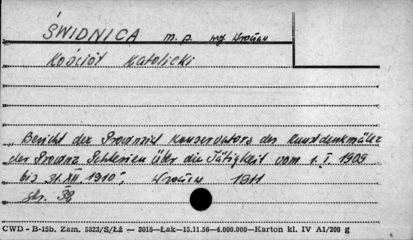 ŚWIDNICA m. p. woj Wrocław
Kościół Katolicki
"Bericht des Provinzial Konservators der Kunstdenkmäler
der Provinz Schlesien über die Tätigkeit vom 1.I.1909
bis 31.XII.1910", Wrocław 1911
str. 38
CWD - B-15b. Zam. 5823/S/Łź — 3016—Łak—15.11.56—4.000.000—Karton kl. IV A1/200 g